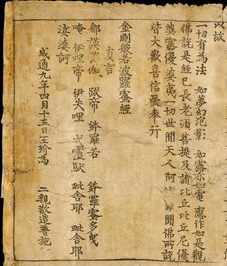 一切有為法 如夢幻泡影 如露亦如電 應作如是觀
佛說是經已長老須菩提及諸比丘比丘尼優
婆塞優婆夷一切世間天人阿 羅聞佛所說
皆大歡喜信受奉行
金剛般若波羅蜜經
真言
伽 跋帝 鉢羅若 鉢羅蜜多
唵 伊利帝 伊失利 毗舍耶 毗舍耶
訶
咸通九年四月十五日王玠為 二親敬造普施